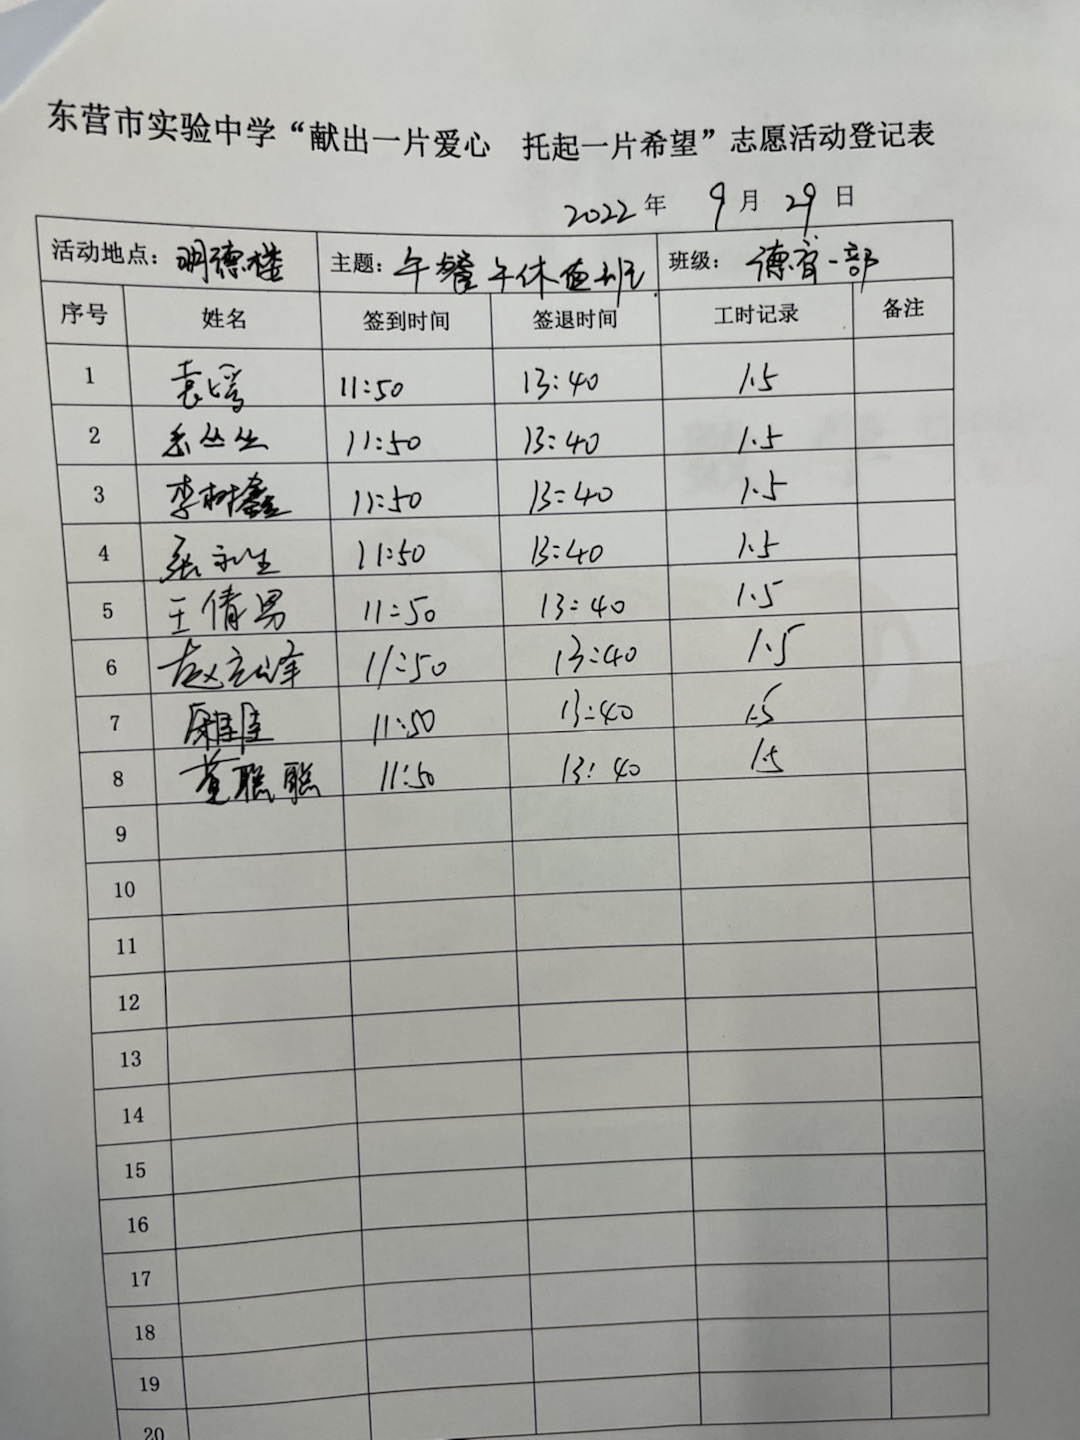 东营市实验中学“献出一片爱心 托起一片希望”志愿活动登记表
2022年 9月 29日
活动地点：明德楼 主题：午餐午休值班 班级：德育一部
序号 姓名 签到时间 签退时间 工时记录 备注
1 袁瑶 11:50 13:40 1.5
2 丛丛 11:50 13:40 1.5
3 李树鑫 11:50 13:40 1.5
4 张永生 11:50 13:40 1.5
5 王倩男 11:50 13:40 1.5
6 赵立峰 11:50 13:40 1.5
7 11:50 13:40 1.5
8 董聪聪 11:50 13:40 1.5
9
10
11
12
13
14
15
16
17
18
19
20